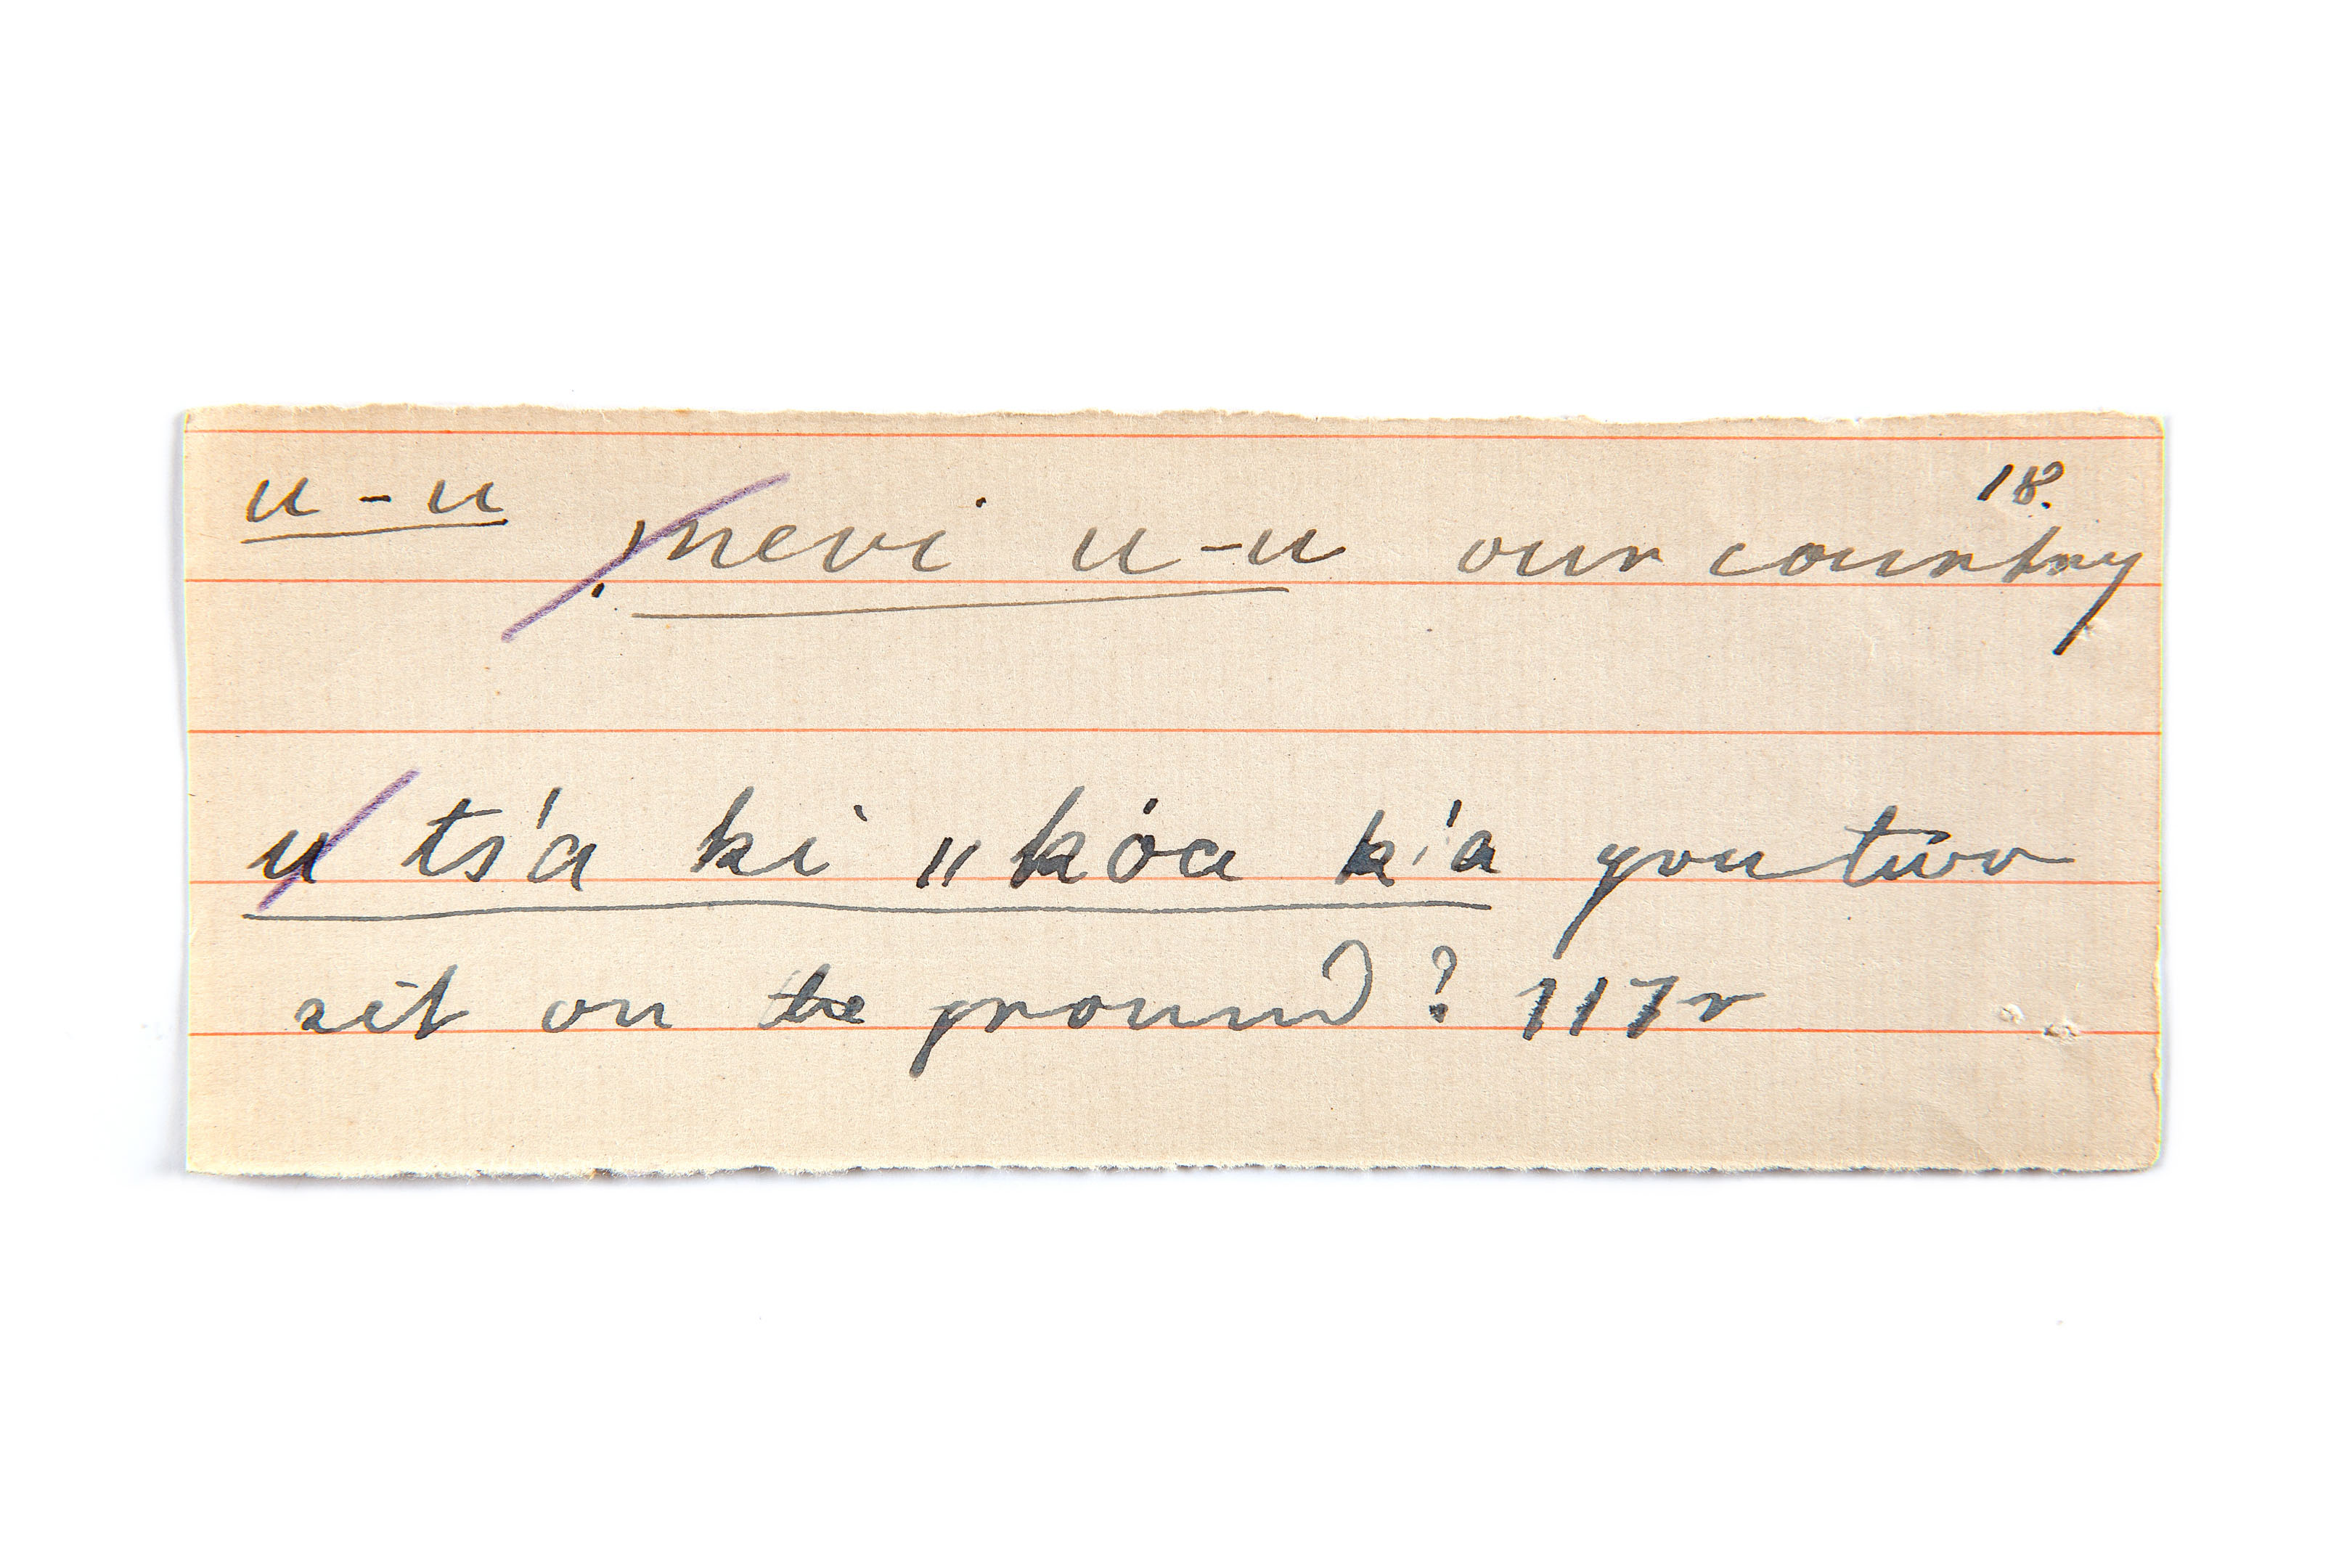 u-u 18.
mevi u-u our country
u ts'a ki "kóa k'a you two
sit on the ground? 117v